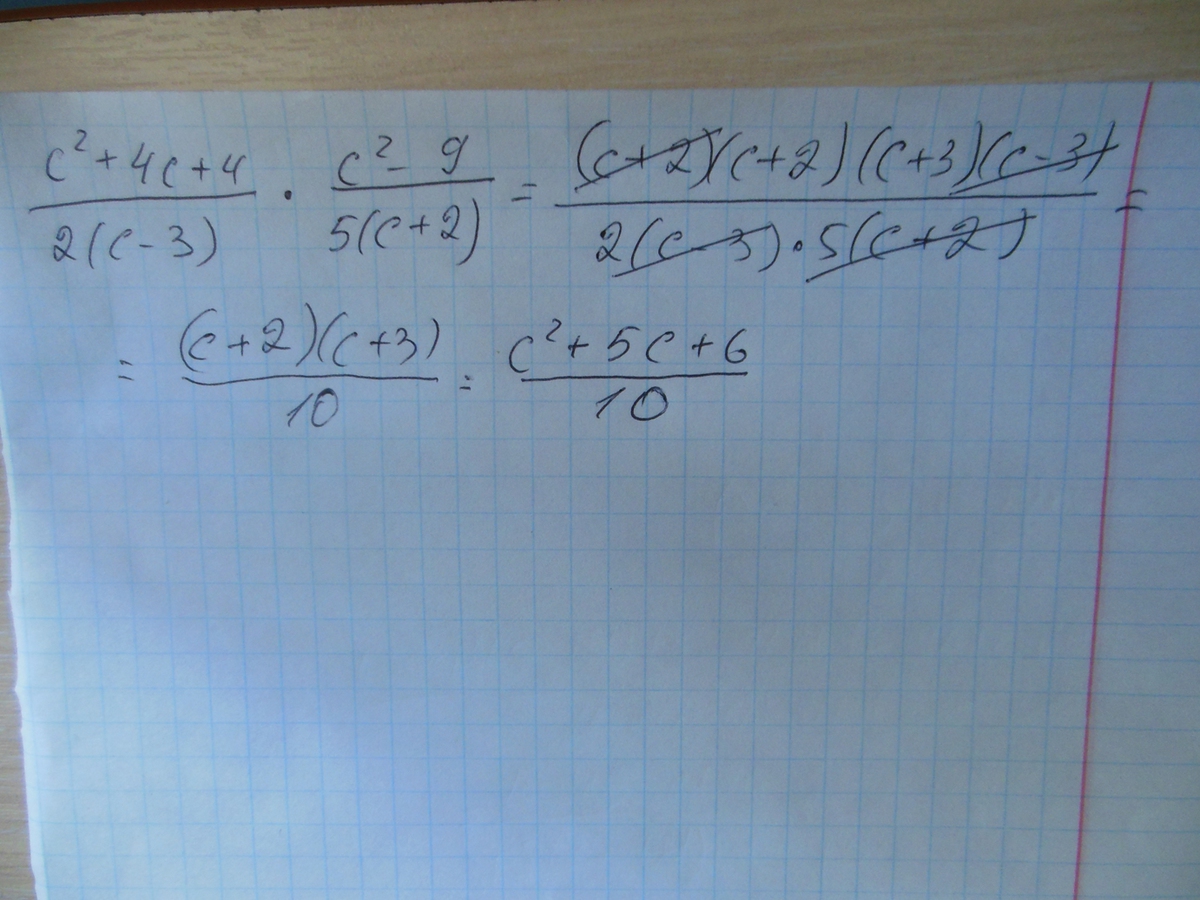 (c²+4c+4)/(2(c-3)) · (c²-9)/(5(c+2)) = ((c+2)(c+2)(c+3)(c-3))/(2(c-3)·5(c+2)) =
= ((c+2)(c+3))/10 = (c²+5c+6)/10